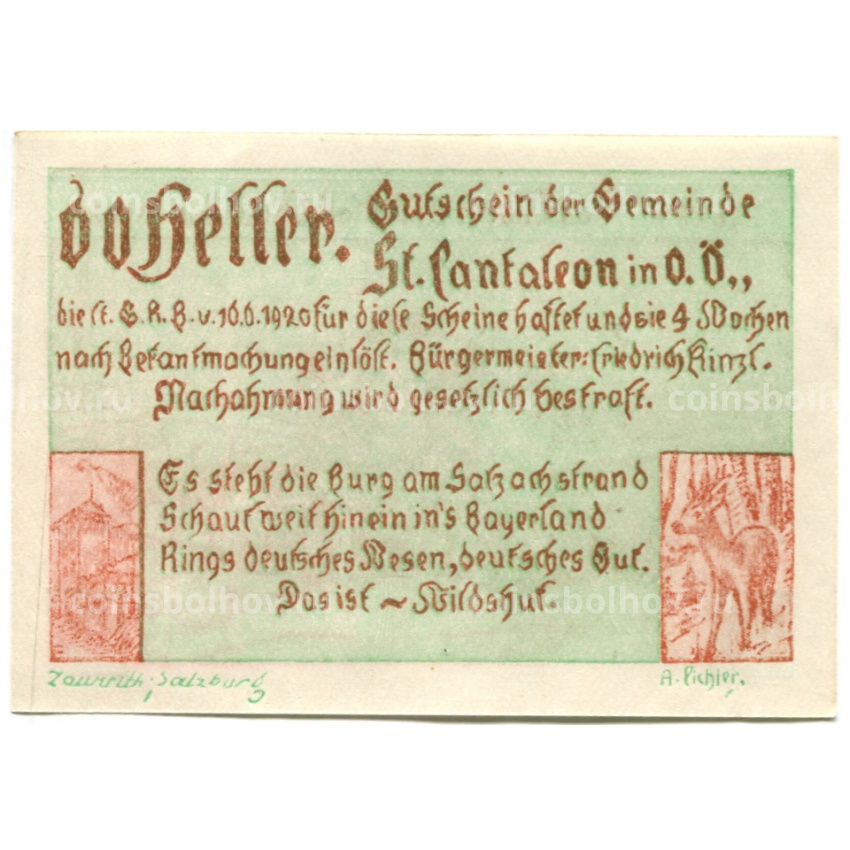 60 Heller. Gutschein der Gemeinde
St. Pantaleon in O.Ö.,,
die lt. G.R.B. v. 16.6.1920 für diese Scheine haftet und sie 4 Wochen
nach Bekantmachung einlöst. Bürgermeister: Friedrich Kinzl.
Nachahmung wird gesetzlich bestraft.
Es steht die Burg am Salzachstrand
Schaut weit hinein in's Bayerland
Rings deutsches Wesen, deutsches Gut.
Das ist ~ Wildshut.
Salzburg
A. Pichler.
coinsbolhov.ru